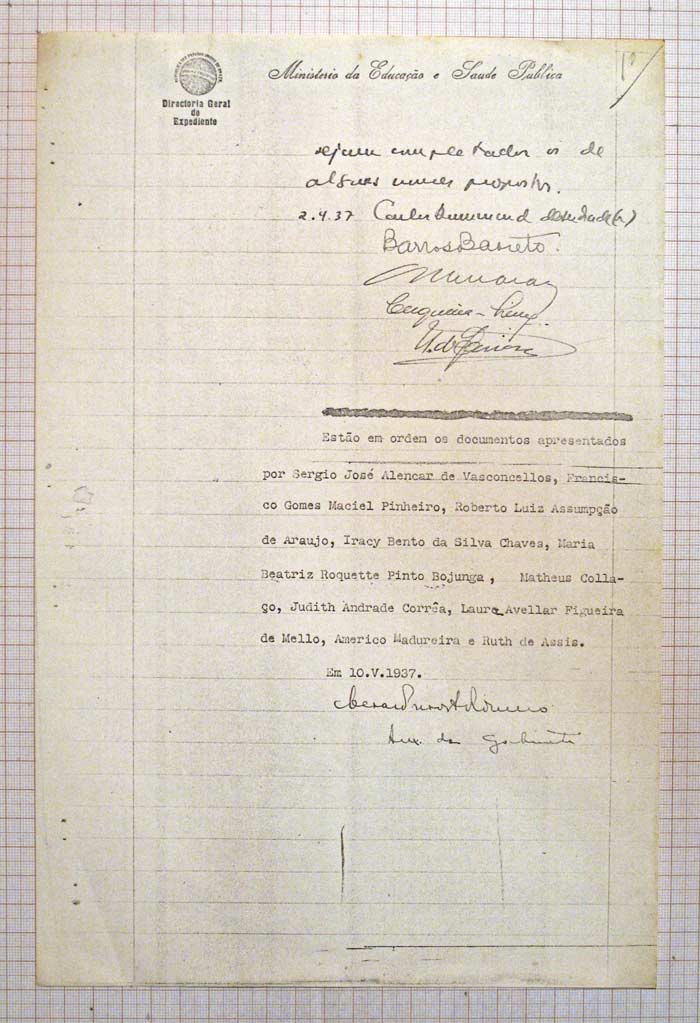 Ministerio da Educação e Saude Publica
Directoria Geral
de
Expediente
sejam completados os de
alguns nomes propostos.
2.4.37 Carlos Drummond de Andrade (r)
Barros Barreto.
Estão em ordem os documentos apresentados
por Sergio José Alencar de Vasconcellos, Francis-
co Gomes Maciel Pinheiro, Roberto Luiz Assumpção
de Araujo, Iracy Bento da Silva Chaves, Maria
Beatriz Roquette Pinto Bojunga, Matheus Colla-
ço, Judith Andrade Corrêa, Laura Avellar Figueira
de Mello, Americo Madureira e Ruth de Assis.
Em 10.V.1937.
Aux. de Gabinete